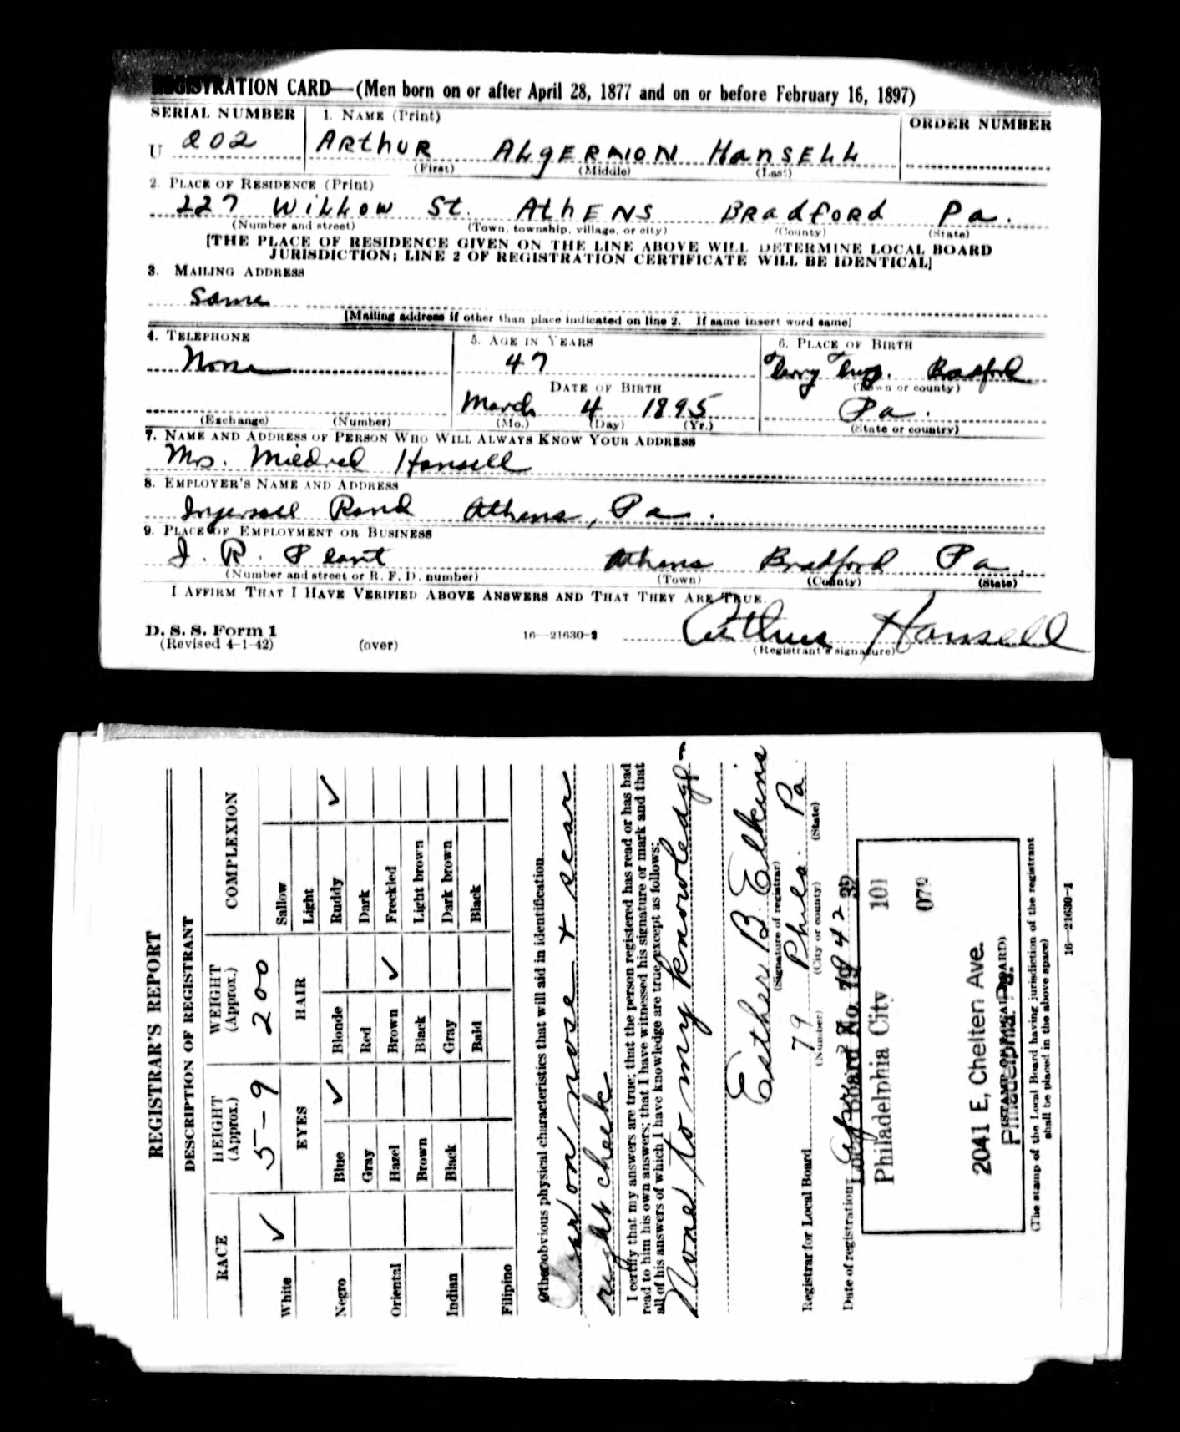 REGISTRATION CARD—(Men born on or after April 28, 1877 and on or before February 16, 1897)
SERIAL NUMBER 1. NAME (Print) ORDER NUMBER
U 202 ARTHUR ALGERNION HANSELL
(First) (Middle) (Last)
2. PLACE OF RESIDENCE (Print)
227 Willow St. AThENS BRadFORd Pa.
(Number and street) (Town, township, village, or city) (County) (State)
[THE PLACE OF RESIDENCE GIVEN ON THE LINE ABOVE WILL DETERMINE LOCAL BOARD
JURISDICTION; LINE 2 OF REGISTRATION CERTIFICATE WILL BE IDENTICAL]
3. MAILING ADDRESS
Same
[Mailing address if other than place indicated on line 2. If same insert word same]
4. TELEPHONE 5. AGE IN YEARS 6. PLACE OF BIRTH
None 47 Terry Twp. Bradford
(Town or county)
DATE OF BIRTH
March 4 1895 Pa.
(Exchange) (Number) (Mo.) (Day) (Yr.) (State or country)
7. NAME AND ADDRESS OF PERSON WHO WILL ALWAYS KNOW YOUR ADDRESS
Mrs. Mildred Hansell
8. EMPLOYER'S NAME AND ADDRESS
Ingersoll Rand Athens, Pa.
9. PLACE OF EMPLOYMENT OR BUSINESS
I. R. Plant Athens Bradford Pa
(Number and street or R. F. D. number) (Town) (County) (State)
I AFFIRM THAT I HAVE VERIFIED ABOVE ANSWERS AND THAT THEY ARE TRUE.
D. S. S. Form 1 16—21630-2 Arthur Hansell
(Revised 4-1-42) (over) (Registrant's signature)
REGISTRAR'S REPORT
DESCRIPTION OF REGISTRANT
RACE HEIGHT (Approx.) WEIGHT (Approx.) COMPLEXION
5-9 200
White ✓ EYES HAIR Sallow
Light
Negro Blue ✓ Blonde Ruddy ✓
Gray Red Dark
Oriental Hazel Brown ✓ Freckled
Brown Black Light brown
Indian Black Gray Dark brown
Bald Black
Filipino
Other obvious physical characteristics that will aid in identification
Scar on nose & scar
right cheek
I certify that my answers are true; that the person registered has read or has had
read to him his own answers; that I have witnessed his signature or mark and that
all of his answers of which I have knowledge are true, except as follows:
None to my knowledge
Esther B Elkins
(Signature of registrar)
Registrar for Local Board 79 Phila. Pa.
(Number) (City or county) (State)
Date of registration 1942
Local Board No. 79 39
Philadelphia City 101
079
2041 E, Chelten Ave.
Philadelphia, Pa.
(STAMP OF LOCAL BOARD)
(The stamp of the Local Board having jurisdiction of the registrant
shall be placed in the above space)
16—21630-1